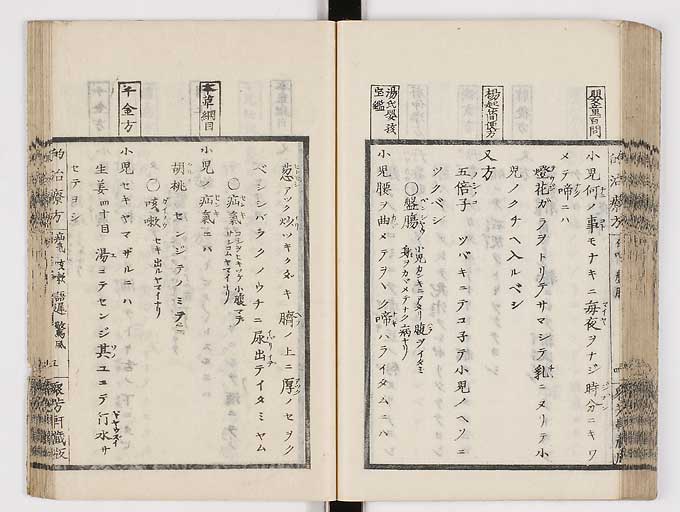 嬰童百問
小児何ノ事モナキニ毎夜ヲナジ時分ニキワ
メテ啼ニハ
燈花ガラヲトリテサマシテ乳ニヌリテ小
児ノクチヘ入ルベシ
又方
五倍子 ツバキニテコ子テ小児ノヘソニ
ツクベシ
湯氏嬰孩
〇盤腸
小児腰ヲ曲メテヲヘク啼ハライタムニハ
葱アツク炒ツキクダキ臍ノ上ニ厚ノセヲク
ベシシバラクノウチニ尿出テイタミヤム
〇疝氣
本草綱目
小児ノ疝氣ニハ
胡桃 センジテノミテ
〇咳嗽 セキ出ルヤマイナリ
千金方
小児セキヤマザルニハ
生姜四十目 湯ニテセンジ其ユニテ行水サ
セテヨシ
的治療方 疝氣 咳嗽 語遲 驚風
五
衆方軒蔵版